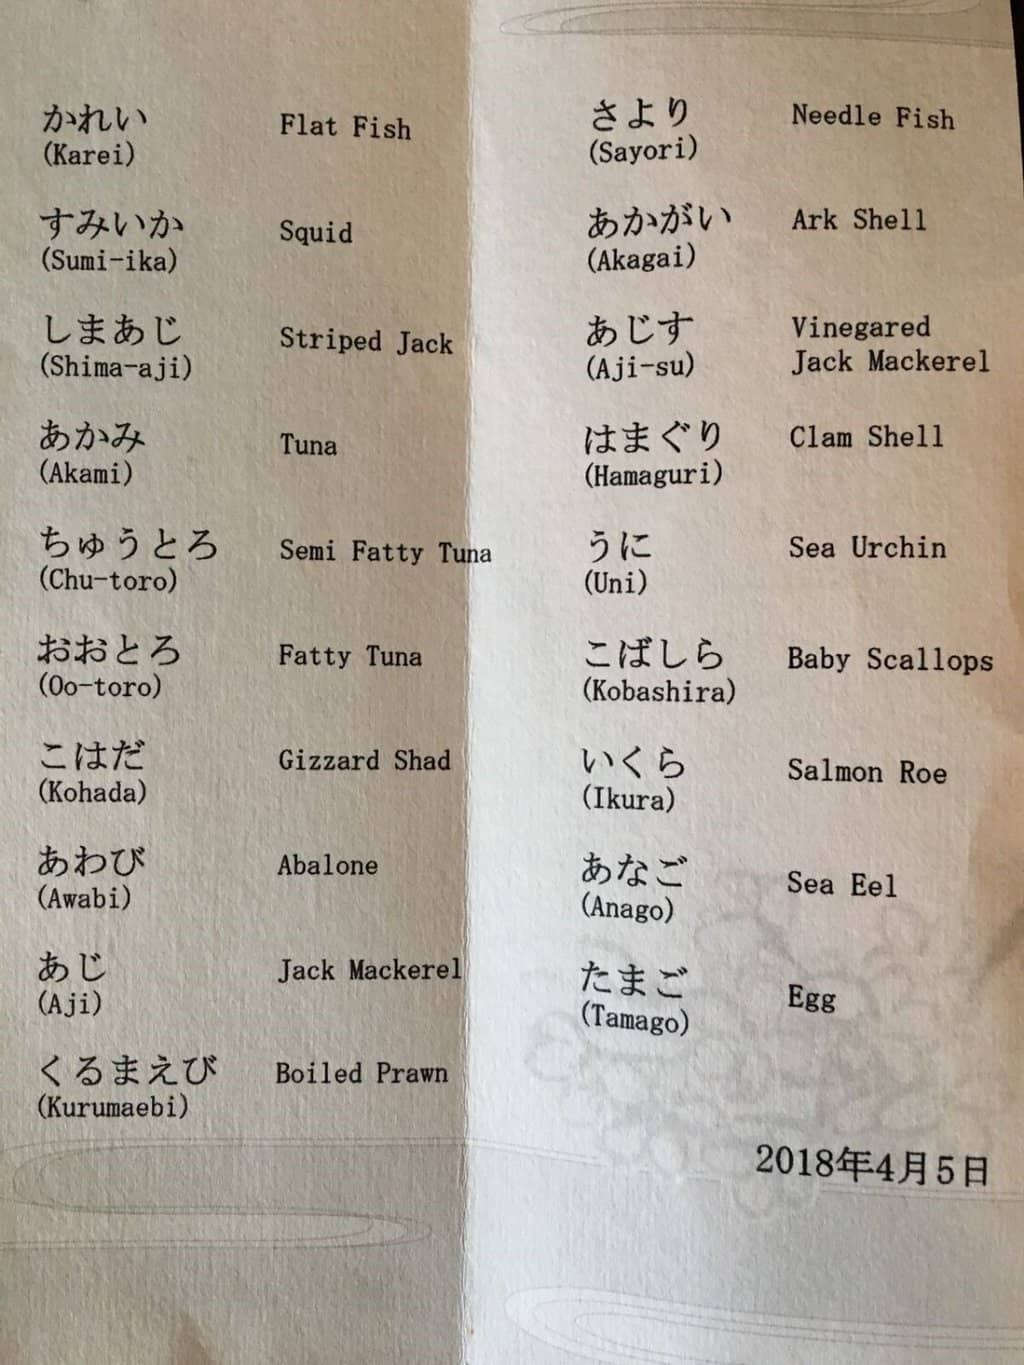 かれい Flat Fish
(Karei)
すみいか Squid
(Sumi-ika)
しまあじ Striped Jack
(Shima-aji)
あかみ Tuna
(Akami)
ちゅうとろ Semi Fatty Tuna
(Chu-toro)
おおとろ Fatty Tuna
(Oo-toro)
こはだ Gizzard Shad
(Kohada)
あわび Abalone
(Awabi)
あじ Jack Mackerel
(Aji)
くるまえび Boiled Prawn
(Kurumaebi)
さより Needle Fish
(Sayori)
あかがい Ark Shell
(Akagai)
あじす Vinegared
(Aji-su) Jack Mackerel
はまぐり Clam Shell
(Hamaguri)
うに Sea Urchin
(Uni)
こばしら Baby Scallops
(Kobashira)
いくら Salmon Roe
(Ikura)
あなご Sea Eel
(Anago)
たまご Egg
(Tamago)
2018年4月5日